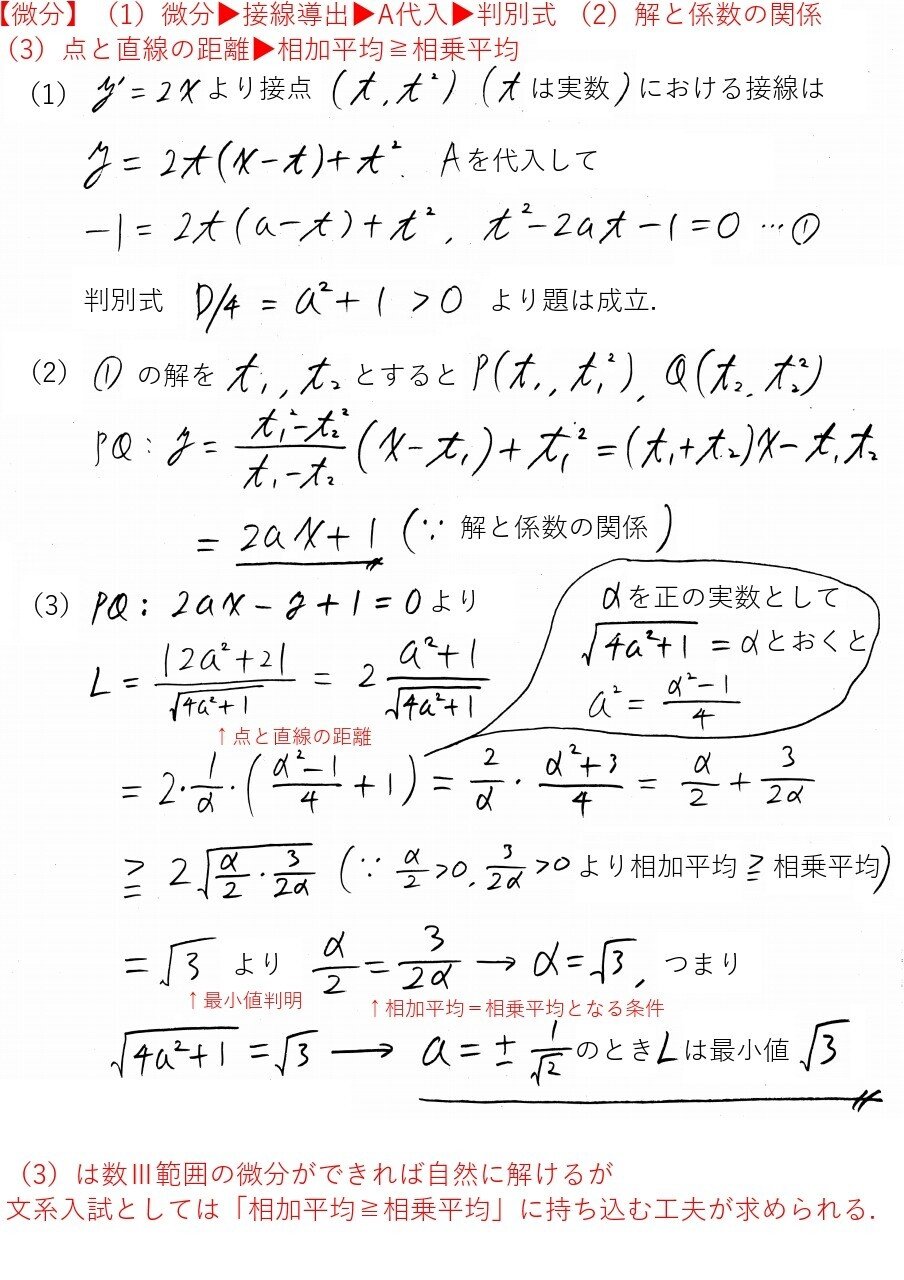 【微分】（1）微分▶接線導出▶A代入▶判別式 （2）解と係数の関係
（3）点と直線の距離▶相加平均≧相乗平均
（1） y'=2x より接点 (t, t²) (t は実数) における接線は
y = 2t(x-t)+t². Aを代入して
-1 = 2t(a-t)+t², t²-2at-1=0 …①
判別式 D/4 = a²+1 >0 より題は成立.
（2） ① の解を t₁, t₂ とすると P(t₁, t₁²), Q(t₂, t₂²)
PQ : y = (t₁²-t₂²)/(t₁-t₂) (x-t₁)+t₁² = (t₁+t₂)x-t₁t₂
= 2ax+1 (∵ 解と係数の関係)
（3） PQ : 2ax-y+1=0 より
L = |2a²+2|/√(4a²+1) = 2 (a²+1)/√(4a²+1)
↑点と直線の距離
αを正の実数として
√(4a²+1) = αとおくと
a² = (α²-1)/4
= 2・1/α・((α²-1)/4 + 1) = 2/α・(α²+3)/4 = α/2 + 3/(2α)
≧ 2√(α/2・3/(2α)) (∵ α/2>0, 3/(2α)>0 より相加平均≧相乗平均)
= √3 より α/2 = 3/(2α) → α=√3, つまり
↑最小値判明 ↑相加平均＝相乗平均となる条件
√(4a²+1) = √3 → a = ± 1/√2 のとき L は最小値 √3
（3）は数Ⅲ範囲の微分ができれば自然に解けるが
文系入試としては「相加平均≧相乗平均」に持ち込む工夫が求められる.